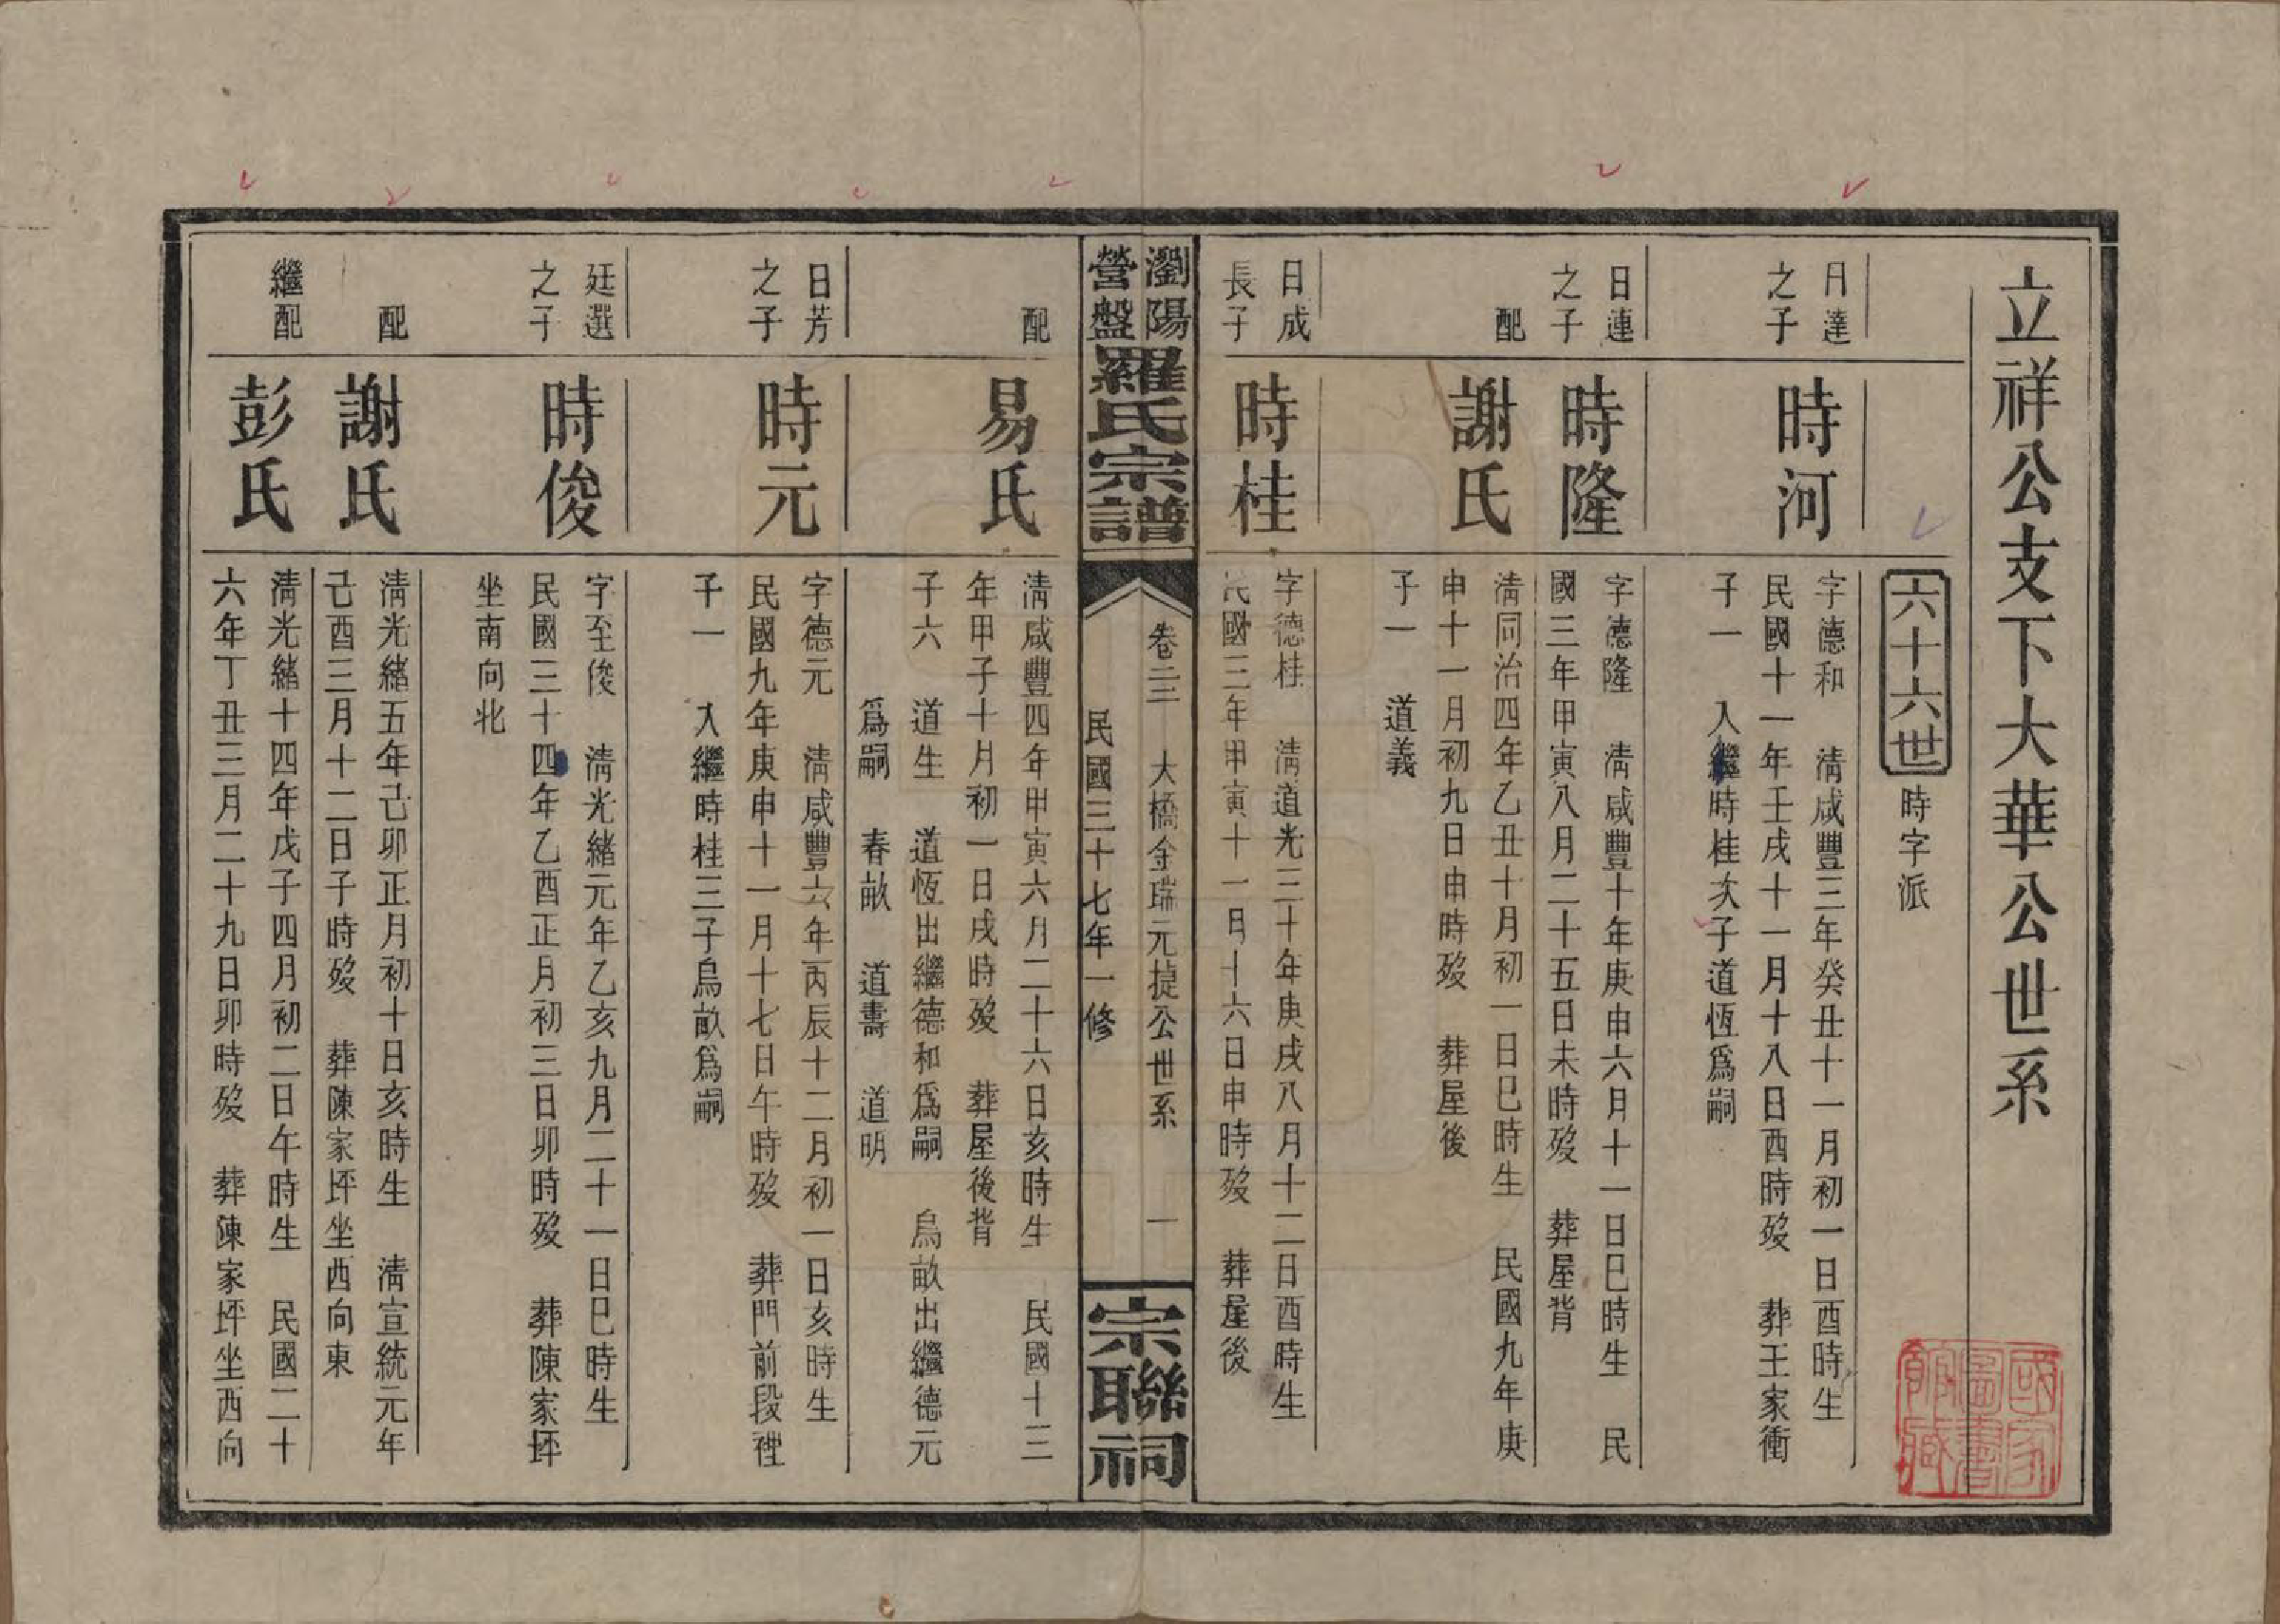 立祥公支下大華公世系
六十六世
時字派
日達
之子
時河
字德和　清咸豐三年癸丑十一月初一日酉時生
民國十一年壬戌十一月十八日酉時歿　葬王家衝
子一　入繼時桂次子道恆爲嗣
日連
之子
時隆
字德隆　清咸豐十年庚申六月十一日巳時生　民
國三年甲寅八月二十五日未時歿　葬屋背
配
謝氏
清同治四年乙丑十月初一日巳時生　民國九年庚
申十一月初九日申時歿　葬屋後
子一　道義
日成
長子
時桂
字德桂　清道光三十年庚戌八月十二日酉時生
民國三年甲寅十一月十六日申時歿　葬屋後
瀏陽
營盤
羅氏宗譜
卷二三　大橋金瑞元㨗公世系　一
民國三十七年一修
宗聯祠
配
易氏
清咸豐四年甲寅六月二十六日亥時生　民國十三
年甲子十月初一日戌時歿　葬屋後背
子六　道生　道恆出繼德和爲嗣　烏畝出繼德元
爲嗣　春畝　道壽　道明
日芳
之子
時元
字德元　清咸豐六年丙辰十二月初一日亥時生
民國九年庚申十一月十七日午時歿　葬門前段裡
子一　入繼時桂三子烏畝爲嗣
廷選
之子
時俊
字至俊　清光緒元年乙亥九月二十一日巳時生
民國三十四年乙酉正月初三日卯時歿　葬陳家坪
坐南向北
配
謝氏
清光緒五年己卯正月初十日亥時生　清宣統元年
己酉三月十二日子時歿　葬陳家坪坐西向東
繼配
彭氏
清光緒十四年戊子四月初二日午時生　民國二十
六年丁丑三月二十九日卯時歿　葬陳家坪坐西向
國家
圖書
館藏